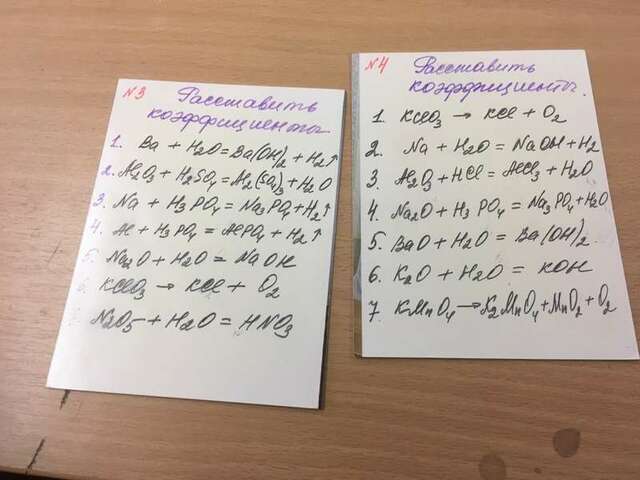 N3 Расставить
коэффициенты
1. Ba + H2O = Ba(OH)2 + H2↑
2. Al2O3 + H2SO4 = Al2(SO4)3 + H2O
3. Na + H3PO4 = Na3PO4 + H2↑
4. Al + H3PO4 = AlPO4 + H2↑
5. Na2O + H2O = NaOH
6. KClO3 → KCl + O2
7. N2O5 + H2O = HNO3
N4 Расставить
коэффициенты.
1. KClO3 → KCl + O2
2. Na + H2O = NaOH + H2
3. Al2O3 + HCl = AlCl3 + H2O
4. Na2O + H3PO4 = Na3PO4 + H2O
5. BaO + H2O = Ba(OH)2.
6. K2O + H2O = KOH
7. KMnO4 → K2MnO4 + MnO2 + O2